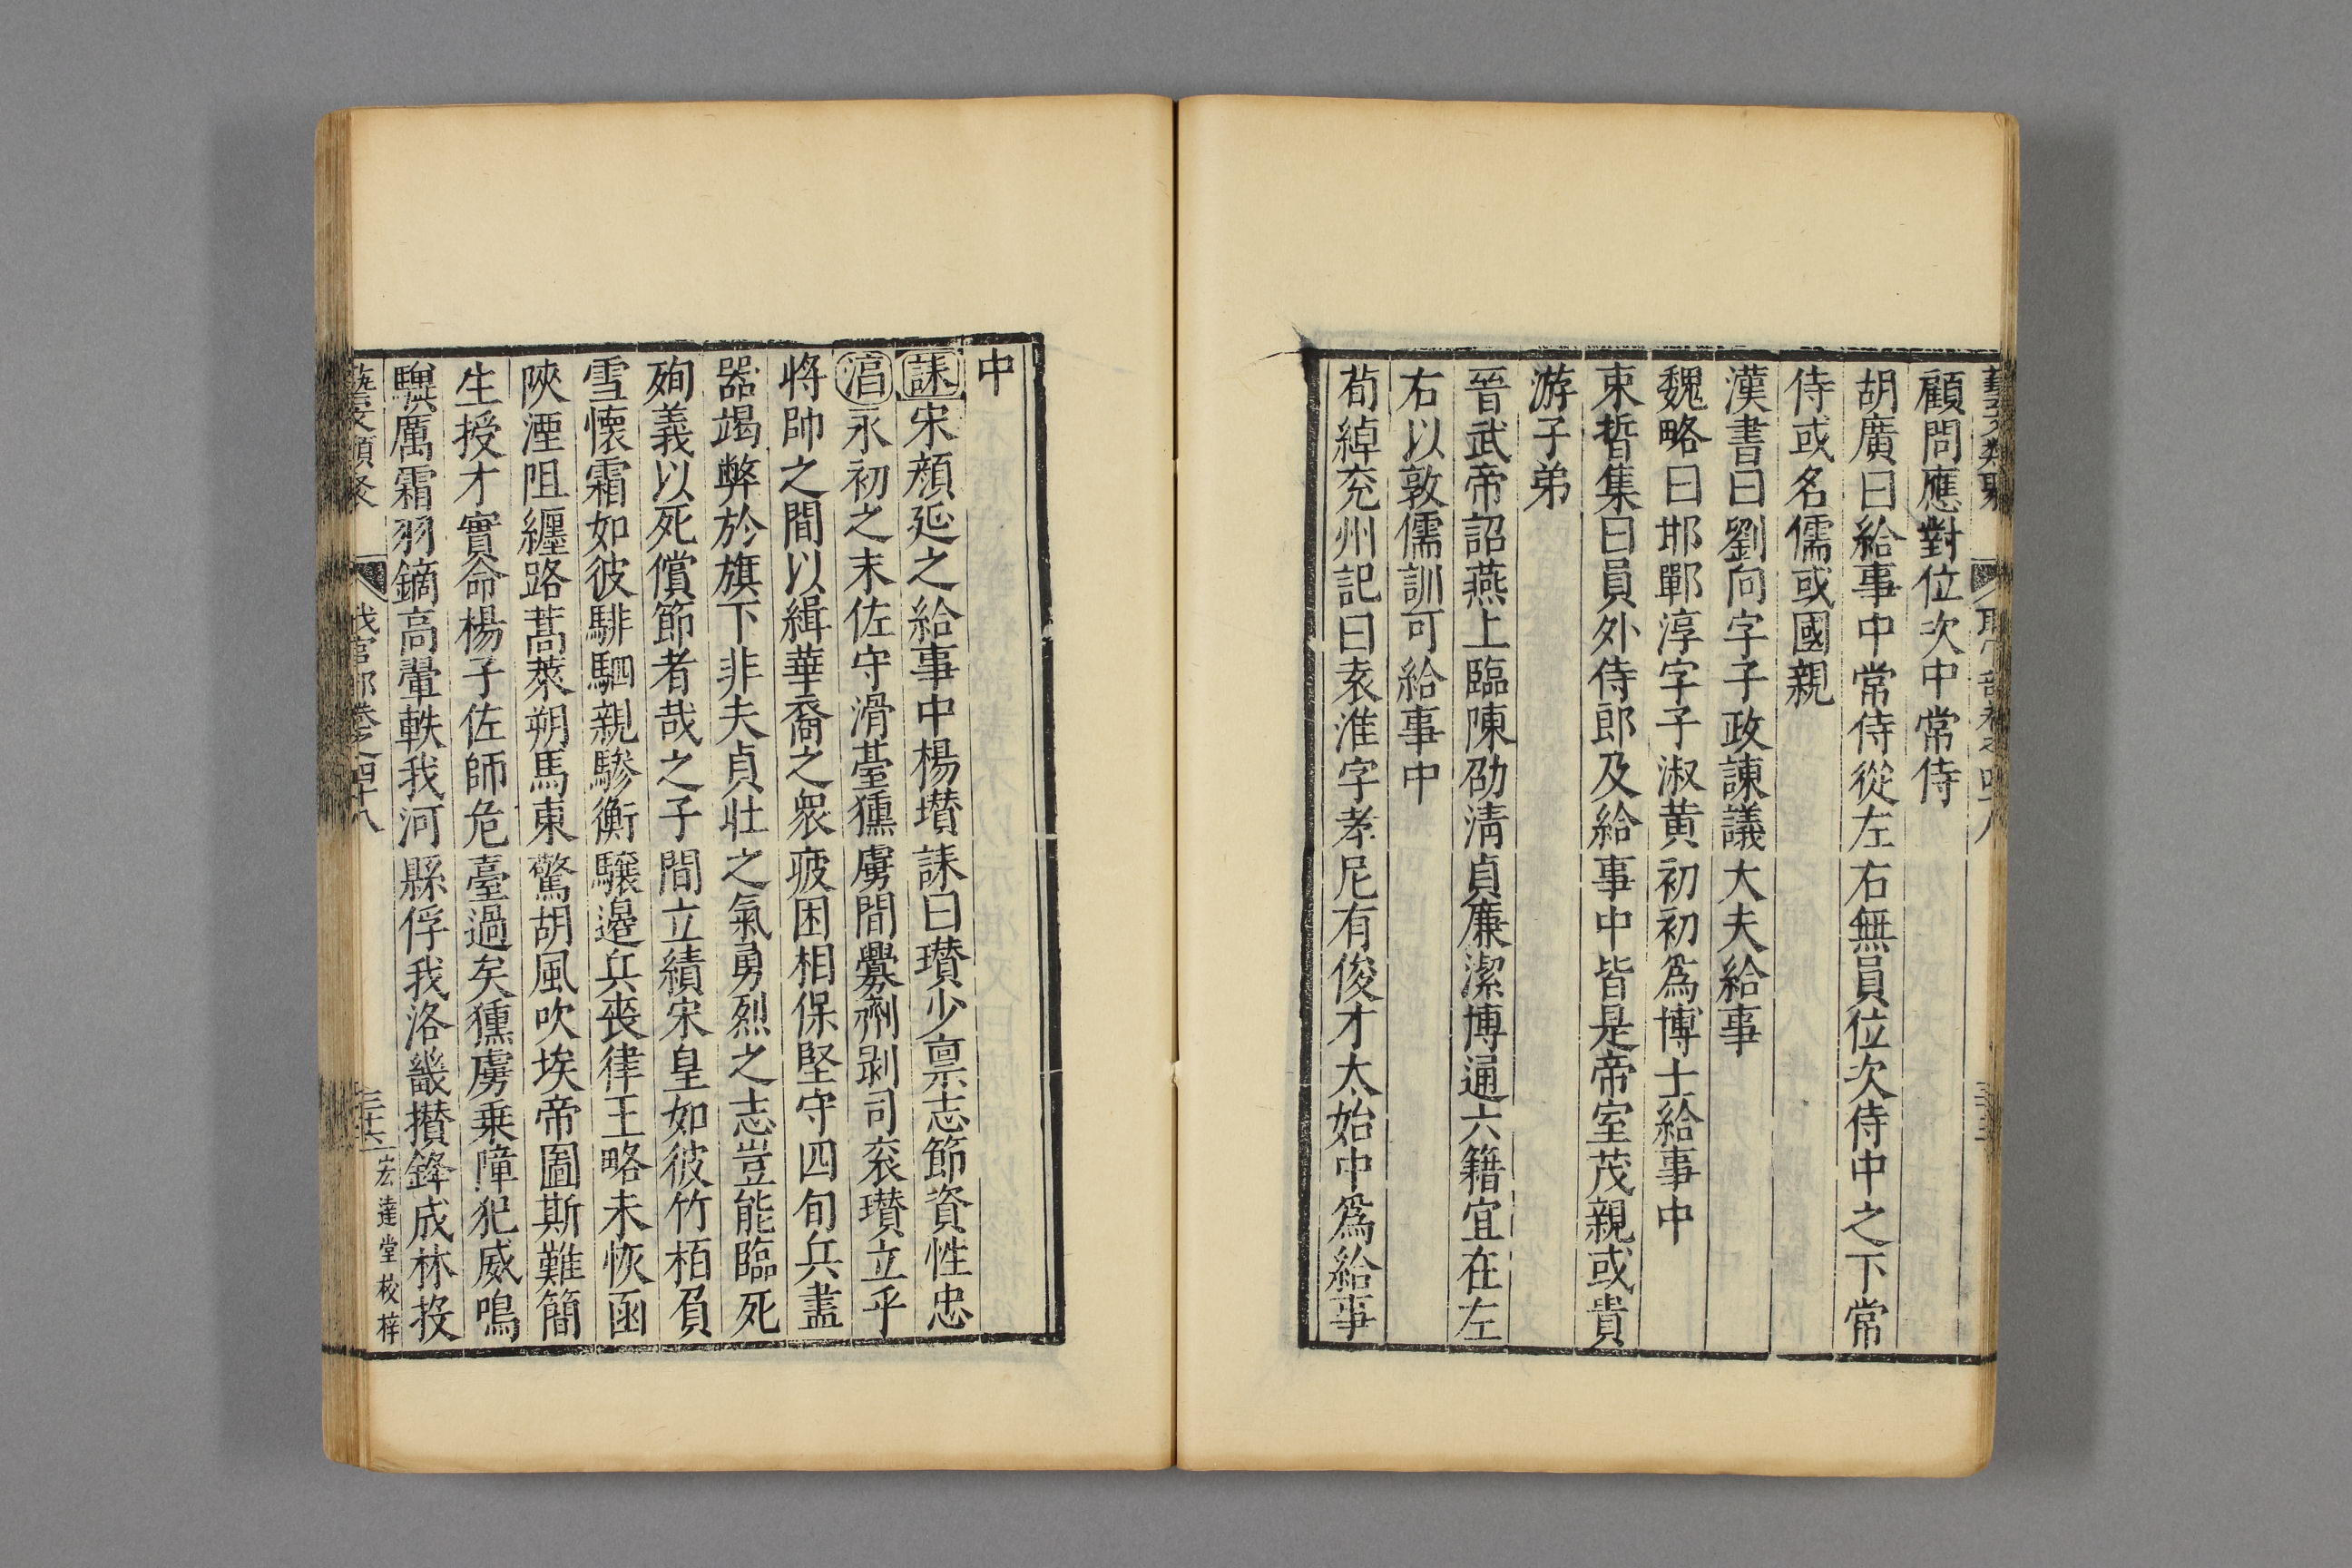 顧問應對位次中常侍
胡廣曰給事中常侍從左右無員位次侍中之下常
侍或名儒或國親
漢書曰劉向字子政諫議大夫給事
魏略曰邯鄲淳字子淑黄初初爲博士給事中
束晳集曰員外侍郎及給事中皆是帝室茂親或貴
游子弟
晉武帝詔燕上臨陳劭清貞廉潔博通六籍宜在左
右以敦儒訓可給事中
荀綽兖州記曰袁准字孝尼有俊才太始中爲給事
中
誄宋顔延之給事中楊瓉誄曰瓉少禀志節資性忠
滔永初之末佐守滑䑓獯虜間釁劘剥司兖瓉立乎
將帥之間以緝華裔之衆疲困相保堅守四旬兵盡
器竭弊於旗下非夫貞壯之氣勇烈之志豈能臨死
殉義以死償節者哉之子間立績宋皇如彼竹栢負
雪懷霜如彼騑駟親驂衡驤邉兵喪律王略未恢函
陝湮阻纒路蒿萊朔馬東驚胡風吹埃帝圖斯難簡
生授才實命楊子佐師危臺過矣獯虜乗障犯威鳴
驥厲霜羽鏑高翬軼我河縣俘我洛畿攅鋒成林投
藝文類聚 職官部卷之四十八 三十六 宏達堂校梓